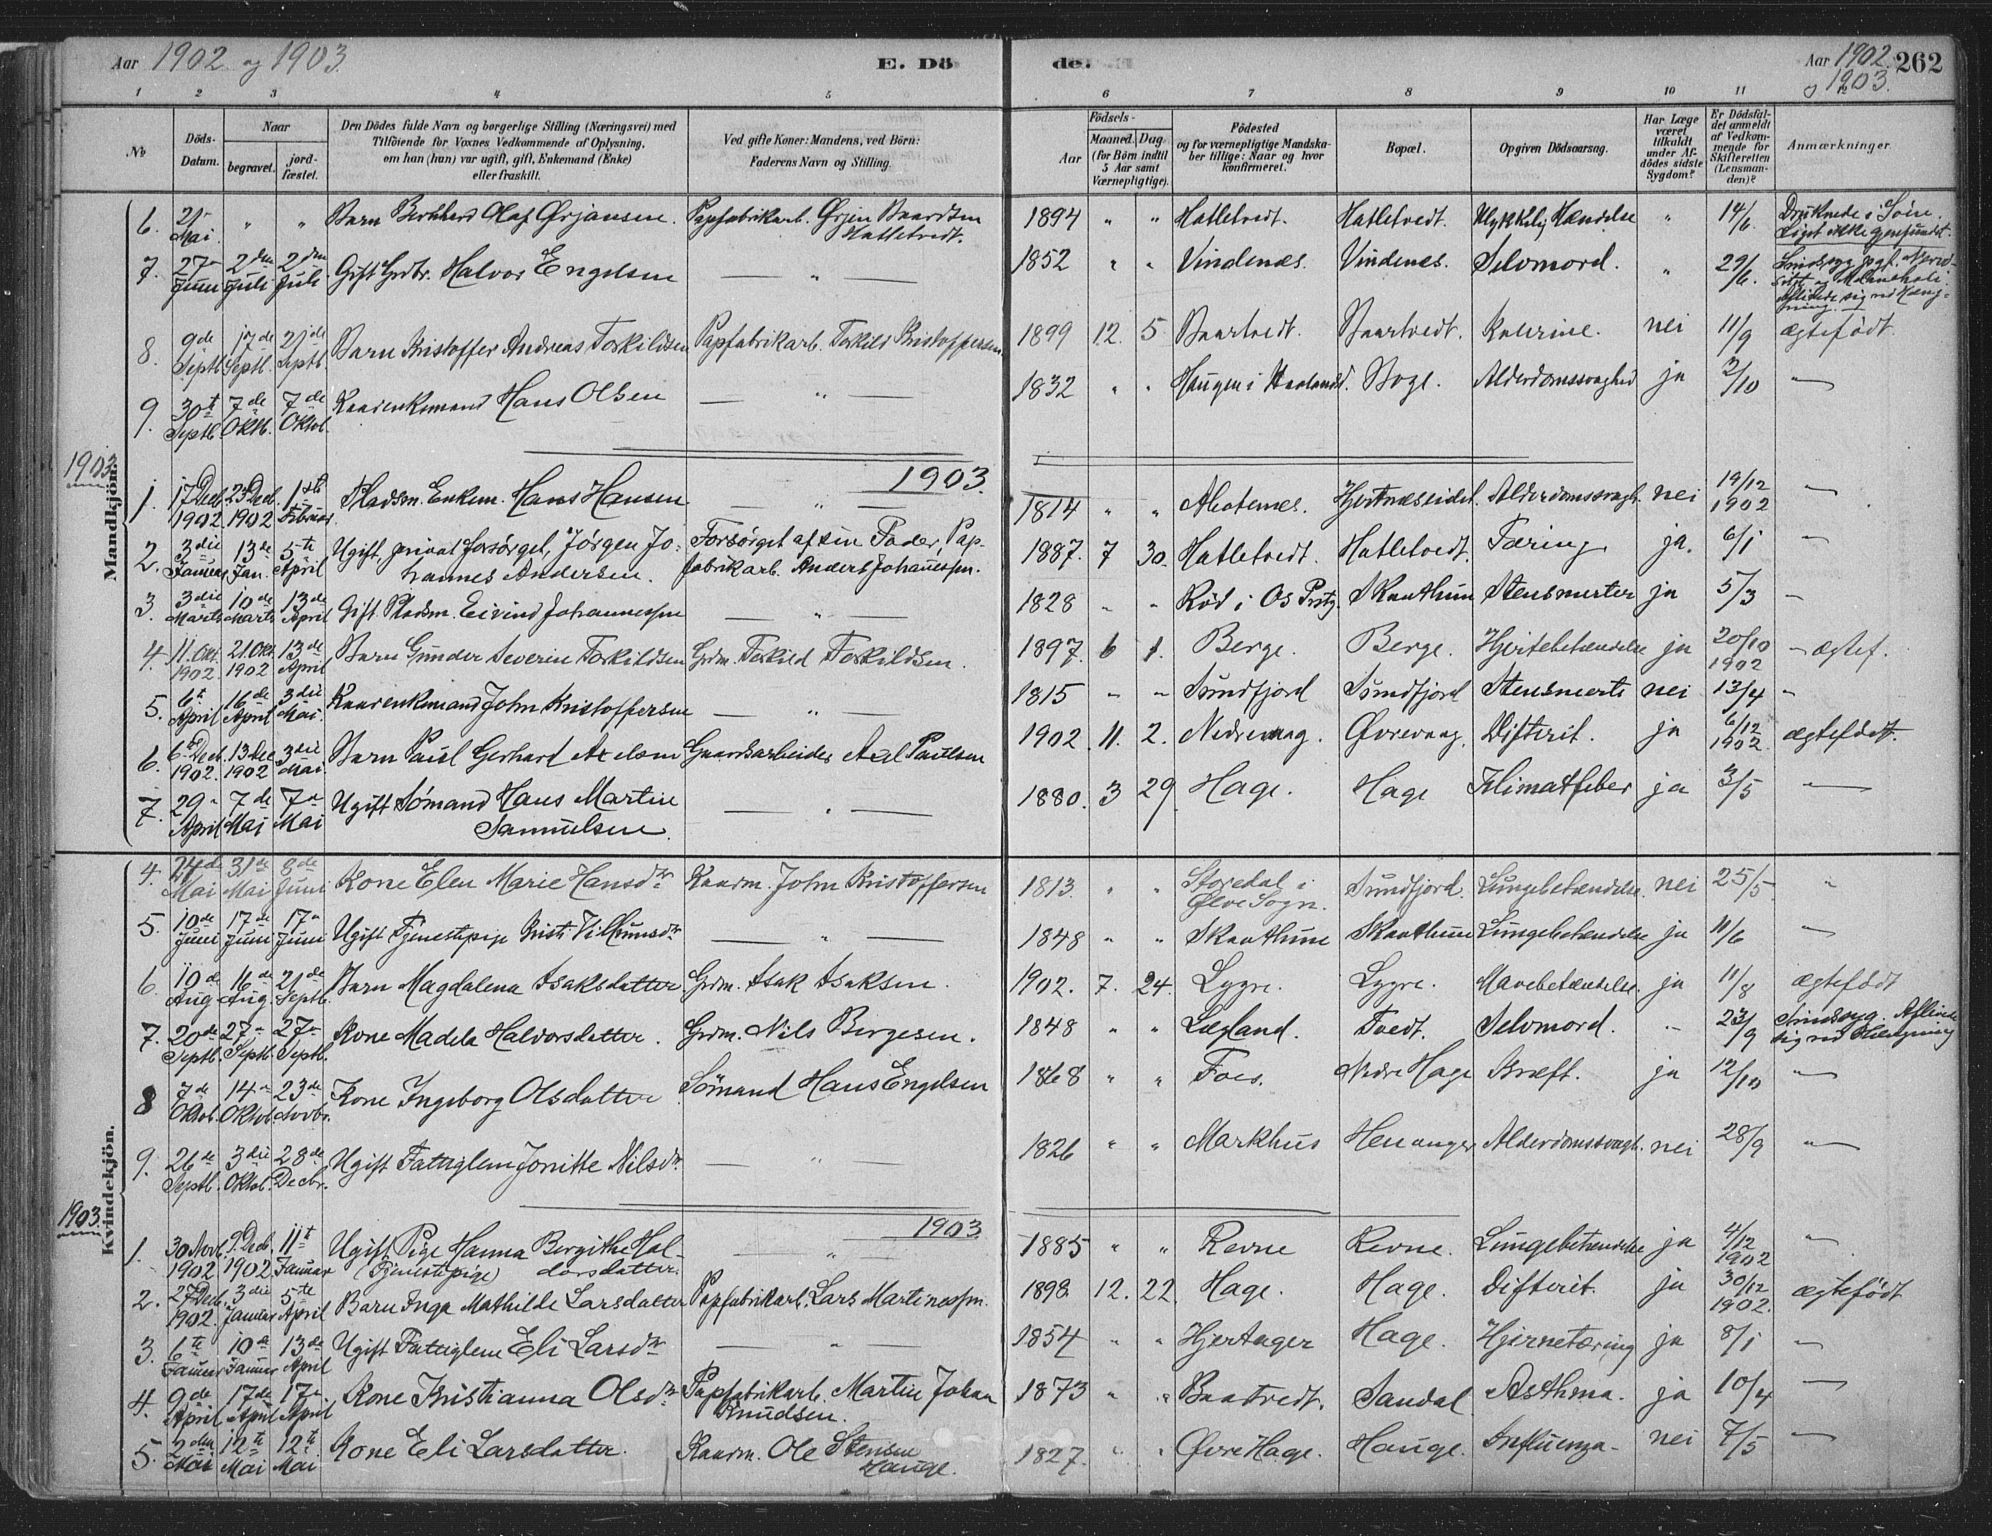 Aar 1902 og 1903.
E. Dö
de.
Aar 1902 og 1903. 262
1 2 3 4 5 6 7 8 9 10 11
№
Döds-Datum.
Naar
begravet.
jordfæstet.
Den Dödes fulde Navn og borgerlige Stilling (Næringsvei) med Tilföiende for Voxnes Vedkommende af Oplysning, om han (hun) var ugift, gift, Enkemand (Enke) eller fraskilt.
Ved gifte Koner: Mandens, ved Börn: Faderens Navn og Stilling.
Födsels-
Aar
Maaned. Dag.
(for Börn indtil 5 Aar samt Værnepligtige).
Födested og for værnepligtige Mandskaber tillige: Naar og hvor konfirmeret.
Bopæl.
Opgiven Dödsaarsag.
Har Læge været tilkaldt under Afdödes sidste Sygdom?
Er Dödsfaldet anmeldt af Vedkommende for Skifteretten (Lensmanden)?
Anmærkninger
Mandkjön.
6. 21 Mai. " " Barn Bernhard Olaf Ørjansen. Papfabrikarb. Ørjen Baardsen Hatletvedt. 1894 " " Hatletvedt. Hatletvedt. Ulykkelig Hændelse " 14/6. Druknede i Søen. Liget ikke gjenfundet.
7. 27 Juni 2den Juli 2den Juli Gift Grdbr. Halvor Engelsen — " — 1852 " " Vindenæs. Vindenæs. Selvmord. " 29/6.
8. 9de Septb. 17de Septb. 21de Septb. Barn Kristoffer Andreas Torkildsen Papfabrikarb. Torkild Kristoffersen 1899 12. 5. Baartvedt. Baartvedt. Kolerine. nei 11/9 ægtefødt.
9. 30t Septb. 7de Oktb. 7de Oktob. Kaarenkemand Hans Olsen — " — 1832 " " Haugen i Haaland. Boge. Alderdomssvaghed ja 2/10 —"—
1903. 1903.
1. 17 Decb. 1902 23 Decb. 1902 1ste Februar. Pladsm. Enkem. Hans Hansen — " — 1814 " " Hjertnæseidet. Alderdomssvagh. nei 19/12 1902 —"—
2. 3die Januar 13de Jan. 5te April Ugift, privat forsørget, Jörgen Johannes Andersen. Forsørget af sin Fader, Papfabrikarb. Anders Johannessen. 1887. 7 30. Hatletvedt. Hatletvedt. Tæring. ja. 6/1 —"—
3. 3die Marts 10de Marts 13de April Gift Pladsm. Eivind Johannessen — " — 1828 " " Rød i Os Prstg. Skaathun Stensmerter ja 5/3 —
4. 11. Okt. 1902 21 Okt. 1902 13de April Barn Gunder Severin Torkildsen Grdm. Torkild Torkildsen. 1897. 6 1. Berge. Berge. Hjertebetændelse ja 20/10 1902 — ægtef.
5. 6t April 16de April 3die Mai. Kaarenkemand John Kristoffersen — " — 1815 " " Sundfjord Sundfjord Stensmerte nei 13/4 "
6. 6t Decb. 1902. 13 Dec 1902 3die Mai. Barn Paul Gerhard Axelsen Gaardsarbeider Axel Paulsen 1902 11. 2. Nedrevaag. Øvrevaag. Difterit. ja 6/12 1902. ægtefødt.
7. 29 April 7de Mai 7de Mai Ugift Sømand Hans Martin Samuelsen. — " — 1880. 3 29. Hage. Hage Klimatfeber ja 3/5 —"—
Kvindekjön.
4. 24de Mai 31de Mai 8de Juni Kone Elen Marie Hansdtr Kaarm. John Kristoffersen 1813. " " Storedal i Ølve Sogn. Sundfjord. Lungebetændelse. nei 25/5. "
5. 10de Juni 17de Juni 17 Juni Ugift Tjenestepige Kristi Vilhunsdtr — " — 1848 " " Skaathun Skaathun Lungebetændelse ja 11/6 —"—
6. 10de Aug 16de Aug. 21de Septb. Barn Magdalena Isaksdatter Grdm. Isak Isaksen. 1902. 7. 24. Lygre. Lygre. Mavebetændelse. ja 11/8 ægtefødt
7. 20de Septb. 27 Septb. 27 Septb. Kone Madela Haldorsdatter. Grdm. Nils Børgesen. 1848 " " Lægland. Tvedt. Selvmord. " 23/9 Sindssyg. Aflivede sig ved Hængning
8 7de Oktob. 14 Oktob. 23de Novbr. Kone Ingeborg Olsdatter Sømand Hans Engelsen 1868 " " Foes. Nedre Hage Kræft. ja 12/10 —"—
9. 26de Septb. 3die Oktob. 28de Decbr. Ugift Fattiglem Jonitte Nilsdtr — " — 1826 " " Markhus Henanger Alderdomssvagh. nei 28/9 —"—
1903. 1903
1. 30 Novb. 1902 9. Decb. 1902 11t Januar Ugift Pige Hanna Bergithe Haldorsdatter. (Tjenestepige) — " — 1885 " " Revne Revne. Lungebetændelse ja 4/12 1902 —"—
2. 27 Decb. 1902. 3die Januar 5te April Barn Inga Mathilde Larsdatter Papfabrikarb. Lars Martinessen. 1898. 12. 22 Hage. Hage. Difterit. ja 30/12 1902. ægtefødt
3. 6te Januar 10de Januar 13de April Ugift Fattiglem Eli Larsdtr — " — 1854 " " Hjertager Hage. Hjernetæring ja 8/1 —"—
4. 9de April 17de April 17 April Kone Kristianna Olsdtr Papfabrikarb. Martin Johan Knudsen. 1873 " " Baatvedt. Sandal Asthma. ja 10/4 —"—
5. 2den Mai 12te Mai 12te Mai Kone Eli Larsdatter. Kaarm. Ole Stensen Hauge. 1827. " " Øvre Hage. Hauge. Influenza. nei 7/5 —"—